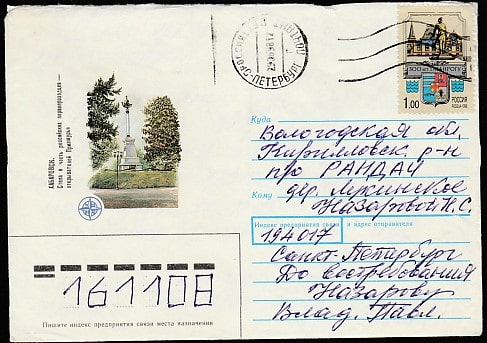 РОССИЯ
САНКТ-ПЕТЕРБУРГ
300 лет ТАГАНРОГУ
1.00 РОССИЯ
ROSSIJA 1998
ХАБАРОВСК.
Стела в честь российских первопроходцев —
открывателей Приамурья
Куда
Вологодская обл,
Кирилловск. р-н
п/о РАНДАЧ
Кому дер. Лукинское
Назаровой Н. С.
Индекс предприятия связи и адрес отправителя
194017
Санкт-Петербург
До востребования
Назарову
Влад. Павл.
161108
Пишите индекс предприятия связи места назначения